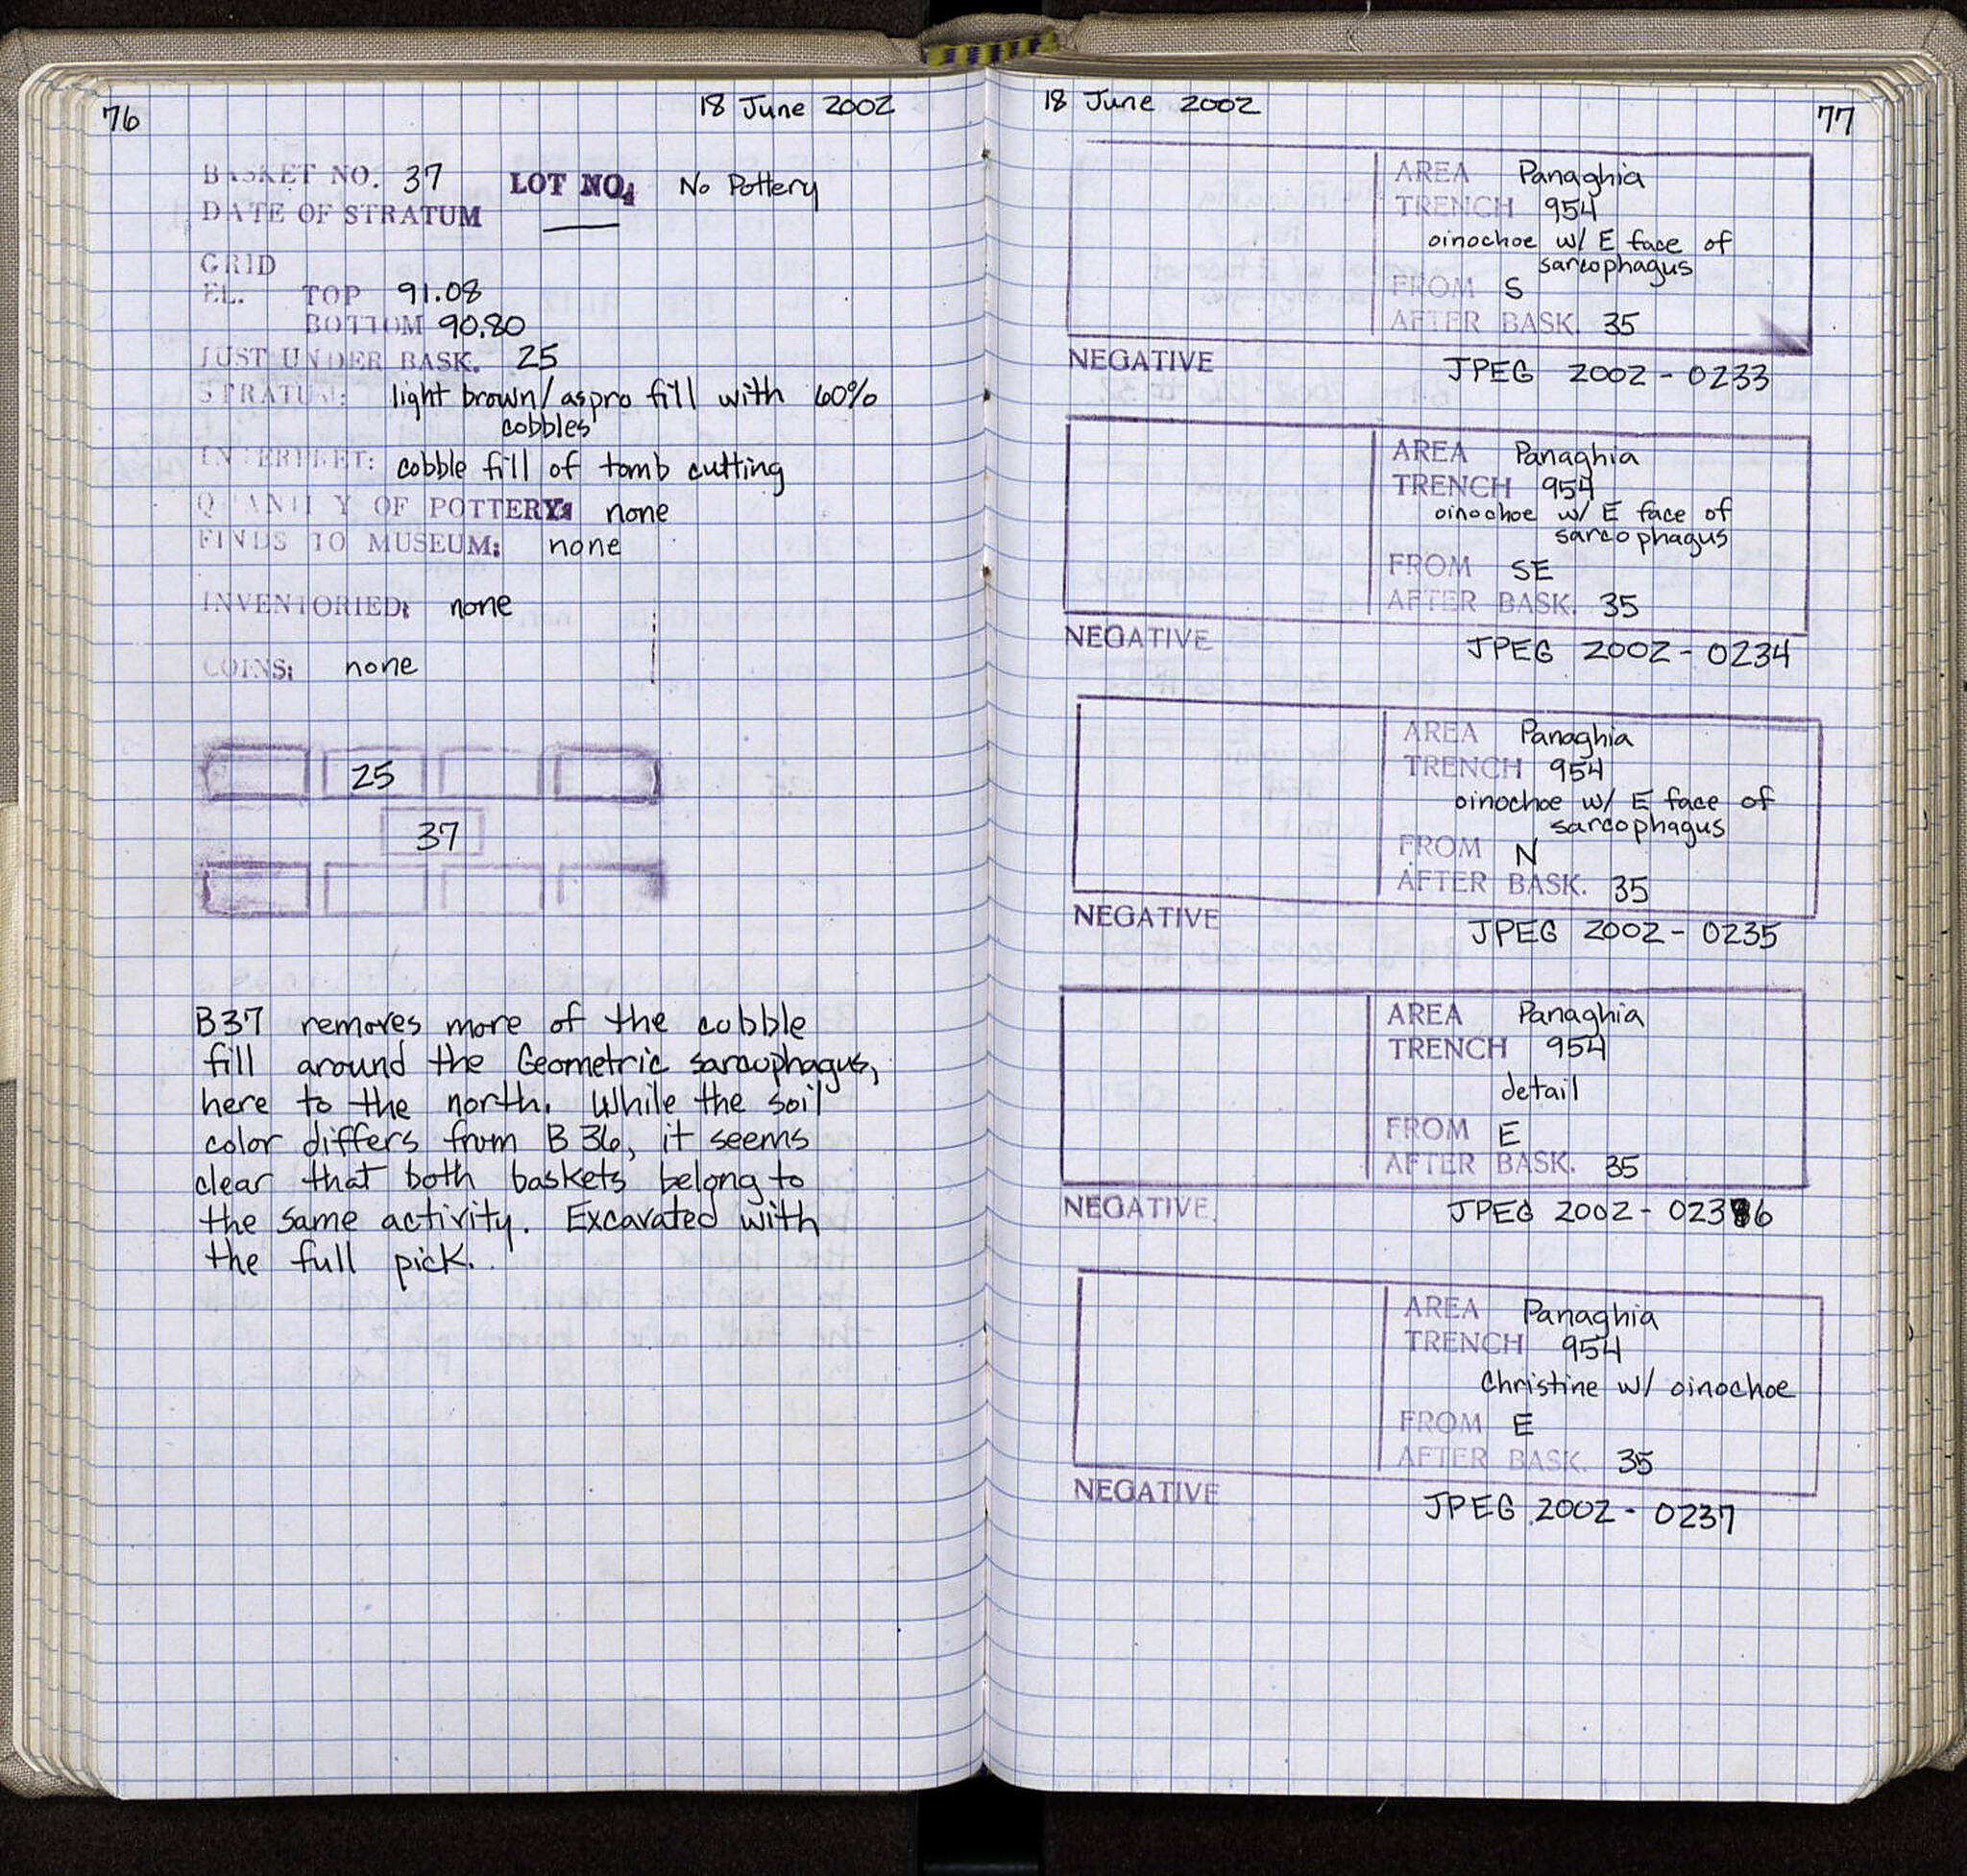 76
18 June 2002
BASKET NO. 37 LOT NO. No Pottery
DATE OF STRATUM
GRID
EL. TOP 91.08
BOTTOM 90.80
JUST UNDER BASK. 25
STRATUM: light brown/aspro fill with 60%
cobbles
INTERPRET: cobble fill of tomb cutting
QUANTITY OF POTTERY: none
FINDS TO MUSEUM: none
INVENTORIED: none
COINS: none
25
37
B37 removes more of the cobble
fill around the Geometric sarcophagus,
here to the north. While the soil
color differs from B 36, it seems
clear that both baskets belong to
the same activity. Excavated with
the full pick.
18 June 2002
77
AREA Panaghia
TRENCH 954
oinochoe w/ E face of
sarcophagus
FROM S
AFTER BASK. 35
NEGATIVE JPEG 2002-0233
AREA Panaghia
TRENCH 954
oinochoe w/ E face of
sarcophagus
FROM SE
AFTER BASK. 35
NEGATIVE JPEG 2002-0234
AREA Panaghia
TRENCH 954
oinochoe w/ E face of
sarcophagus
FROM N
AFTER BASK. 35
NEGATIVE JPEG 2002-0235
AREA Panaghia
TRENCH 954
detail
FROM E
AFTER BASK. 35
NEGATIVE JPEG 2002-0236
AREA Panaghia
TRENCH 954
Christine w/ oinochoe
FROM E
AFTER BASK. 35
NEGATIVE JPEG 2002-0237